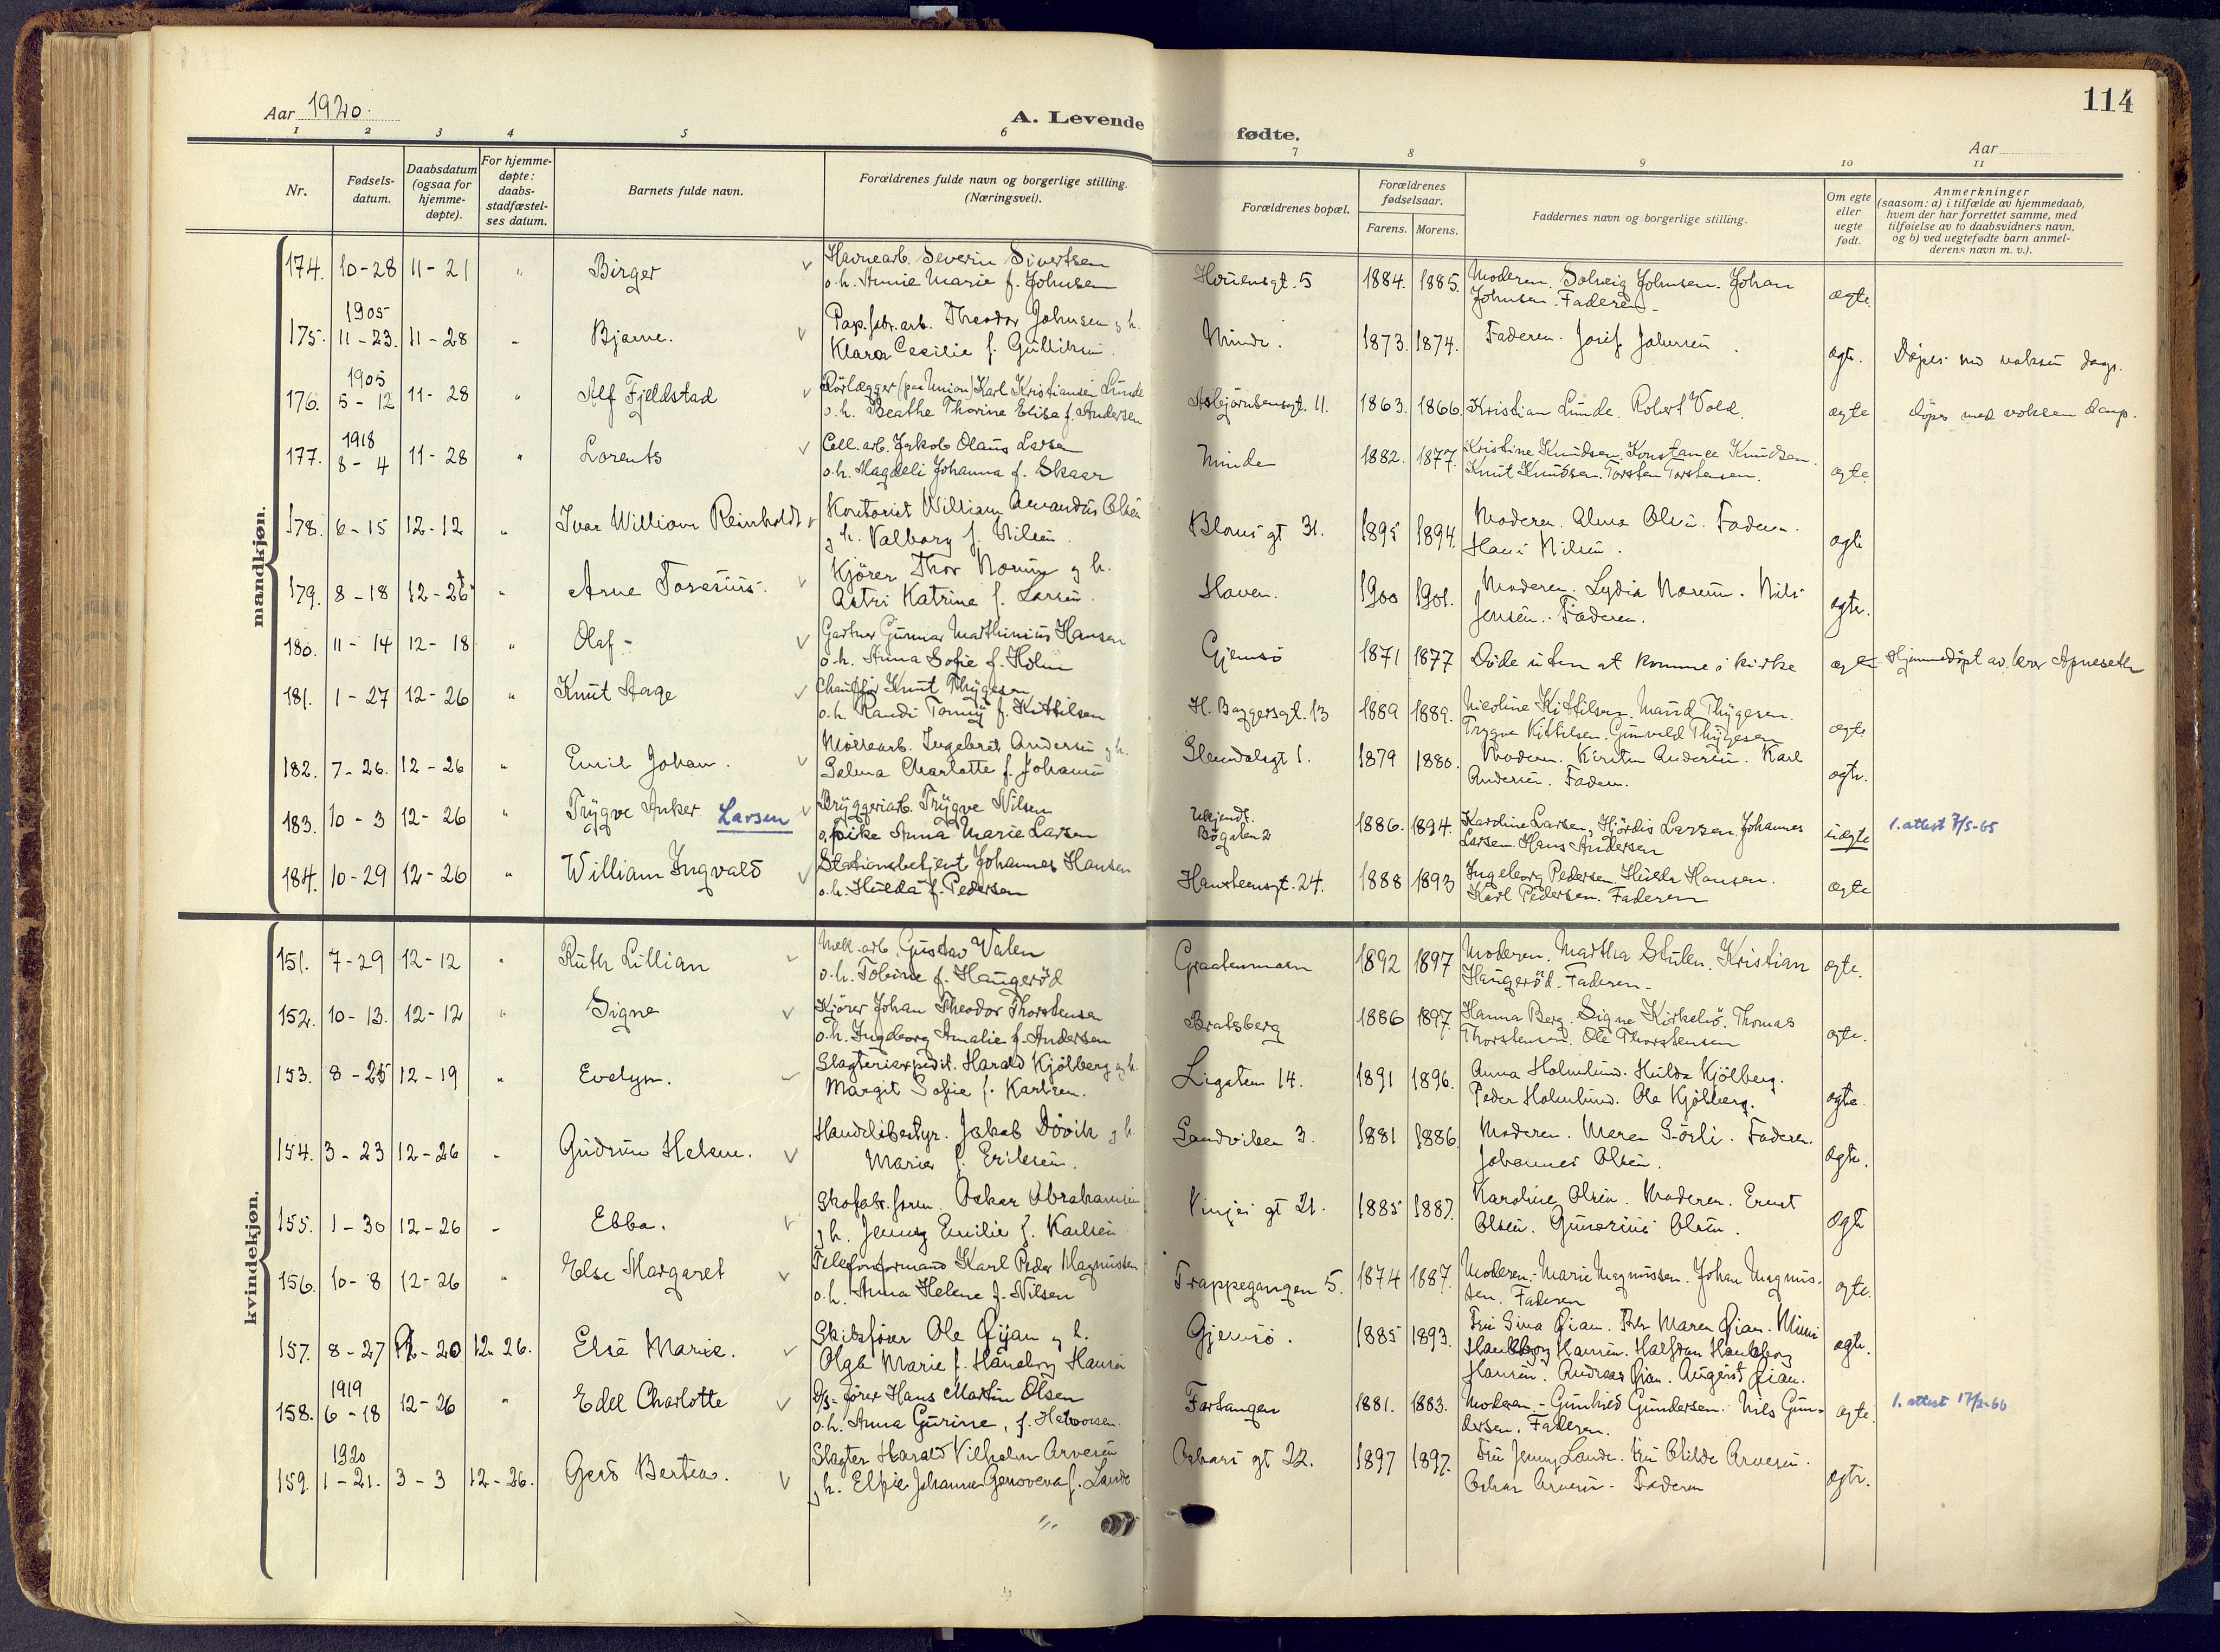 114
Aar 1920.
A. Levende fødte.
Aar
1 2 3 4 5 6 7 8 9 10 11
Nr.
Fødsels-
datum.
Daabsdatum
(ogsaa for
hjemme-
døpte).
For hjemme-
døpte:
daabs-
stadfæstel-
ses datum.
Barnets fulde navn.
Forældrenes fulde navn og borgerlige stilling.
(Næringsvei).
Forældrenes bopæl.
Forældrenes
fødselsaar.
Farens. Morens.
Faddernes navn og borgerlige stilling.
Om egte
eller
uegte
født.
Anmerkninger
(saasom: a) i tilfælde av hjemmedaab,
hvem der har forrettet samme, med
tilføielse av to daabsvidners navn,
og b) ved uegtefødte barn anmel-
derens navn m. v.).
mandkjøn.
174. 10-28 11-21 " Birger
Havnearb. Severin Sivertsen
o.h. Annie Marie f. Johnsen
5 1884. 1885.
Moderen. Solveig Johnsen. Johan
Johnsen. Faderen.
ægte.
1905
175. 11-23. 11-28 " Bjarne.
Pap.fabr.arb. Theodor Johnsen og h.
Klara Cecilie f. Gulliksen.
Minde. 1873. 1874.
Faderen. Josef Johnsen.
ægte. Døpes med voksen daap.
1905
176. 5-12 11-28 " Alf Fjeldstad
Rørlægger (paa Union) Karl Kristiansen Lunde
o.h. Beathe Thorine Elise f. Andersen
Asbjørnsensgt. 11. 1863. 1866.
Kristian Lunde. Robert Vold.
ægte døpes med voksen daap.
1918
177. 8-4 11-28 " Lorents
Cell. arb. Jakob Olaus Larsen
o.h. Magdeli Johanna f. Skaar
Minde 1882. 1877.
Kristine Knudsen. Konstanse Knudsen.
Knut Knudsen. Torsten Torstensen.
ægte
178. 6-15 12-12 " Ivar William Reinholdt
Kontorist William Amandus Olsen
og h. Valborg f. Nilsen.
Bloms gt 31. 1895 1894.
Moderen. Alma Olsen. Faderen.
Hans Nilsen.
ægte
179. 8-18 12-26 " Arne Torenius.
Kjører Thor Norum og h.
Astri Katrine f. Larsen.
Haven. 1900 1901.
Moderen. Lydia Norum. Nils
Jensen. Faderen.
ægte.
180. 11-14 12-18 " Olaf
Gartner Gunnar Marthinius Hansen
o.h. Anna Sofie f. Holm
Gjemsø 1871 1877
Døde uten at komme i kirke
ægte Hjemmedøpt av
181. 1-27 12-26 " Knut Aage
Chauffør Knut Thygesen
o.h. Randi Tomy f. Kittilsen
H. Baggersgt. 13 1889 1889.
Nicoline Kittilsen. Maud Thygesen.
Trygve Kittilsen. Gunvald Thygesen
ægte
182. 7-26. 12-26 " Emil Johan.
Møllearb. Ingebret Andersen og h.
Selma Charlotte f. Johansen
1. 1879 1880.
Moderen. Kirsten Andersen. Karl
Andersen. Faderen.
ægte.
183. 10-3 12-26 " Trygve Anker Larsen
Bryggeriarb. Trygve Nilsen
o. pike Anna Marie Larsen
Ukjendt.
Bøgaten 2 1886. 1894.
Karoline Larsen, Hjørdis Larsen. Johannes
Larsen. Hans Andersen
uægte 1. attest 7/5-65
184. 10-29 12-26 " William Ingvald
Stationsbetjent Johannes Hansen
o.h. Hulda f. Pedersen
Hansteensgt. 24. 1888 1893
Ingeborg Pedersen. Hulda Hansen.
Karl Pedersen. Faderen
ægte
kvindekjøn.
151. 7-29 12-12 " Ruth Lillian
Mek. arb. Gustav Valen
o.h. Tobine f. Haugerød
Graatenmoen 1892 1897
Moderen. Martha Stulen. Kristian
Haugerød. Faderen.
ægte.
152. 10-13. 12-12 " Signe
Kjører Johan Theodor Thorstensen
o.h. Ingeborg Amalie f. Andersen
Bratsberg 1886 1897.
Hanna Berg. Signe Kirkebø. Thomas
Thorstensen. Ole Thorstensen
ægte.
153. 8-25 12-19 " Evelyn.
Slagteriexpedit. Harald Kjølberg og h.
Margit Sofie f. Karlsen.
Ligaten 14. 1891 1896.
Anna Holmlund. Hulda Kjølberg.
Peder Holmlund. Ole Kjølberg.
ægte
154. 3-23 12-26 " Gudrun Helene.
Handelsbestyr. Jakob Døvik og h.
Marie f. Eriksen.
Sandviken 3. 1881 1886.
Moderen. Maren Sørli. Faderen.
Johannes Olsen.
ægte.
155. 1-30 12-26 " Ebba.
Skofabr.form. Oskar Abrahamsen
og h. Jenny Emilie f. Karlsen
Vinjes gt 21. 1885 1887.
Karoline Olsen. Moderen. Ernst
Olsen. Gunerius Olsen.
ægte
156. 10-8 12-26 " Else Margaret
Telefonformand Karl Peder Magnussen
o.h. Anna Helene f. Nilsen
Trappegangen 5. 1874 1887.
Moderen. Marie Magnussen. Johan Magnus-
sen. Faderen
ægte.
157. 8-27 12-20 12-26. Else Marie.
Skibsfører Ole Qijan og h.
Olga Marie f. Haneborg Hansen
Gjemsø. 1885 1893.
Fru Sina Qian. Frk Maren Qian. Mimi
Haneborg Hansen. Halfdan Haneborg
Hansen. Andreas Qian. August Qian.
ægte.
1919
158. 6-18 12-26 " Edel Charlotte
D/s-fører Hans Martin Olsen
o.h. Anna Gurine, f. Halvorsen.
Fartangen 1881. 1883.
Moderen. Gunhild Gundersen. Nils Gun-
dersen. Faderen.
ægte. 1. attest 17/2-66
1920
159. 1-21. 3-3 12-26. Gerd Bertea.
Slagter Harald Vilhelm Arvesen
og h. Elfie Johanne Genoveva f. Lande
Oskars gt 22. 1897 1897.
Fru Jenny Lande. Fru Hilda Arvesen.
Oskar Arvesen. Faderen
ægte.